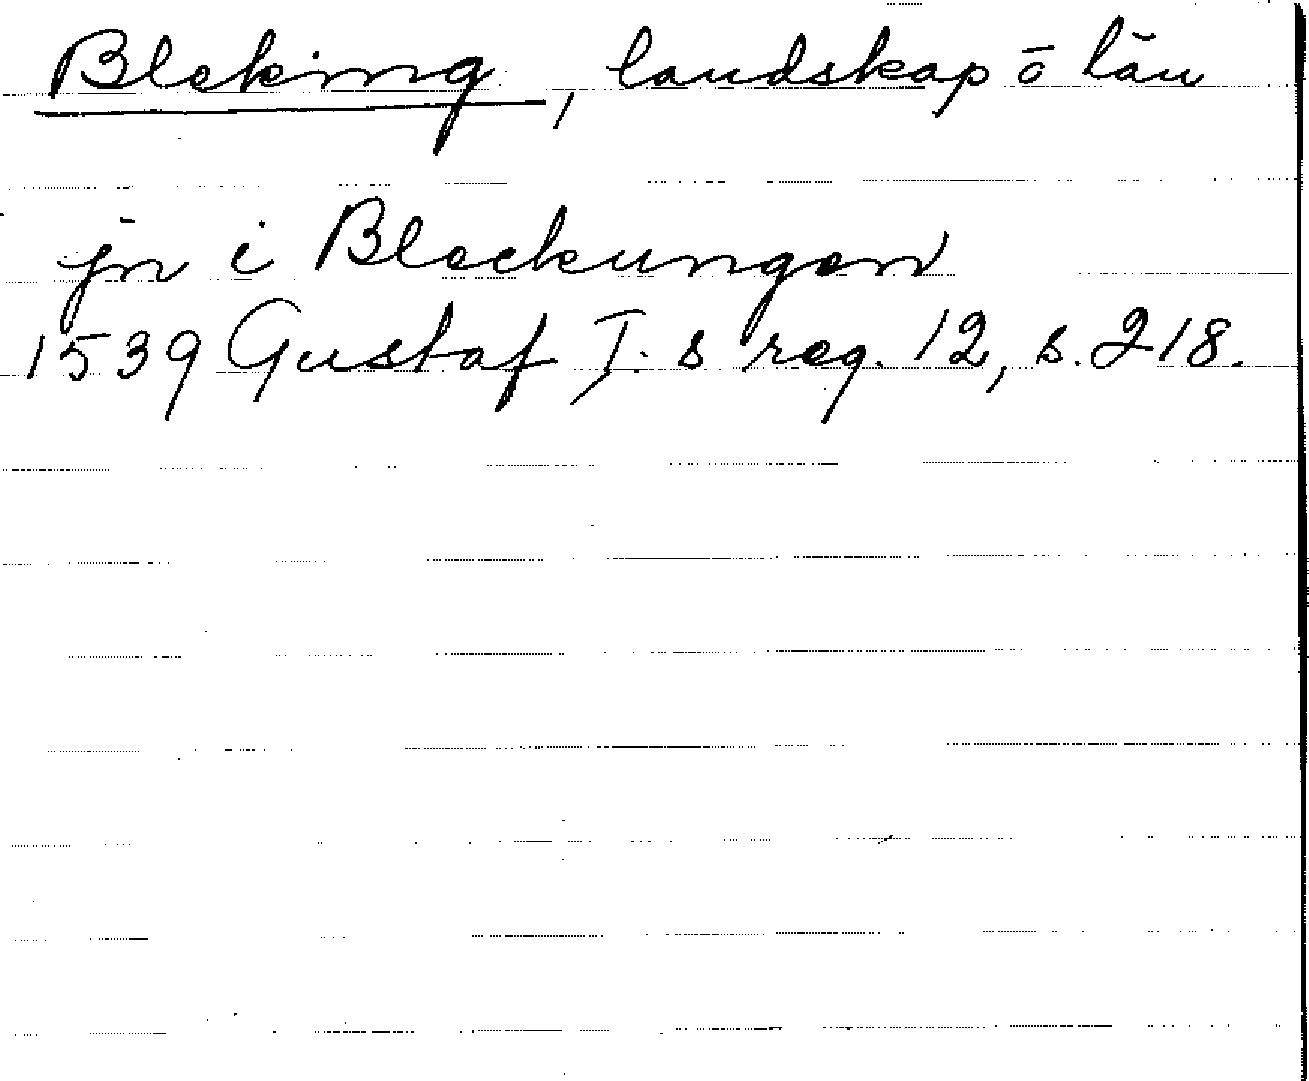 Bleking, landskap ō län
jn i Bleckungen
1539 Gustaf I:s reg. 12, s. 218.